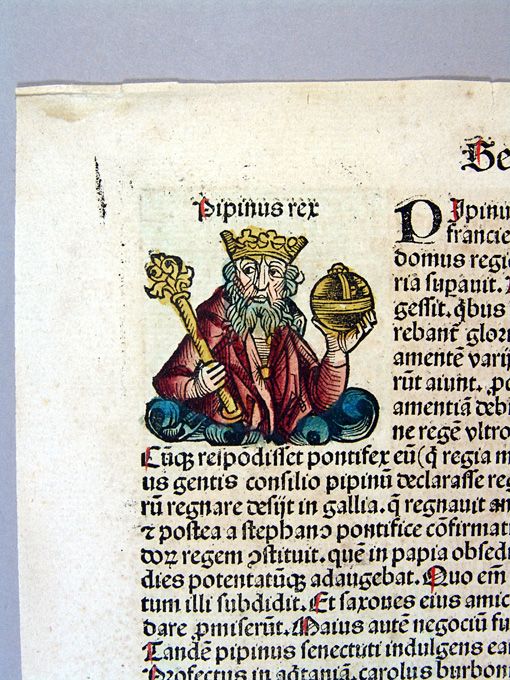 Se
Pipinus rex
PIpinu
francie
domus regi
ria supauit.
gessit. qbus
rebant̄ glori
amentē varij
rūt aiunt. po
amentiā debi
ne regē vltro
Cūqꝫ respōdisset pontifex eū (q̄ regia m
us gentis consilio pipinū declarasse reg
rū regnare desijt in gallia. q̄ regnauit an
⁊ postea a stephanꝯ pontifice cōfirmat
doꝝ regem ꝯstituit. quē in papia obsed
dies potentatūqꝫ adaugebat. Quo em̄
tum illi subdidit. Et saxones eius amic
dare ꝓmiserūt. Maius autē negociū fu
Tandē pipinus senectuti indulgens ea
Profectus in aq̄taniā. carolus burboni